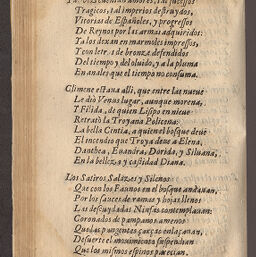 Tragicos, i al imperios destruydos,
Vitorias de Españoles, y progressos
De Reynos por las armas adquiridos:
Ta los dexan en marmoles impressos,
Y con letras de bronze defendidos
Del tiempo y del oluido, y a la pluma
En anales que el tiempo no consuma.
Climene estaua alli, que entre las nueue
Le dió Venus lugar, aunque morena,
Y Filida, de quien Lisipo en nieue
Retrató la Troyana Policena:
La bella Cintia, a quien el bosque deue
El incendio que Troya deue a Elena,
Dantea, Euandra, Dorida, y Siluana,
En la belleza y castidad Diana.
Los Satiros Salazes y Silenos
Que con los Faunos en el bosque andauan,
Por los sauces de ramas y hojas llenos
Las descuydadas Ninfas contemplauan:
Coronados de pampanos amenos
Que las pungentes çarças enlaçauan,
De suerte el mouimiento suspendian
Que los mismos espinos parecian.